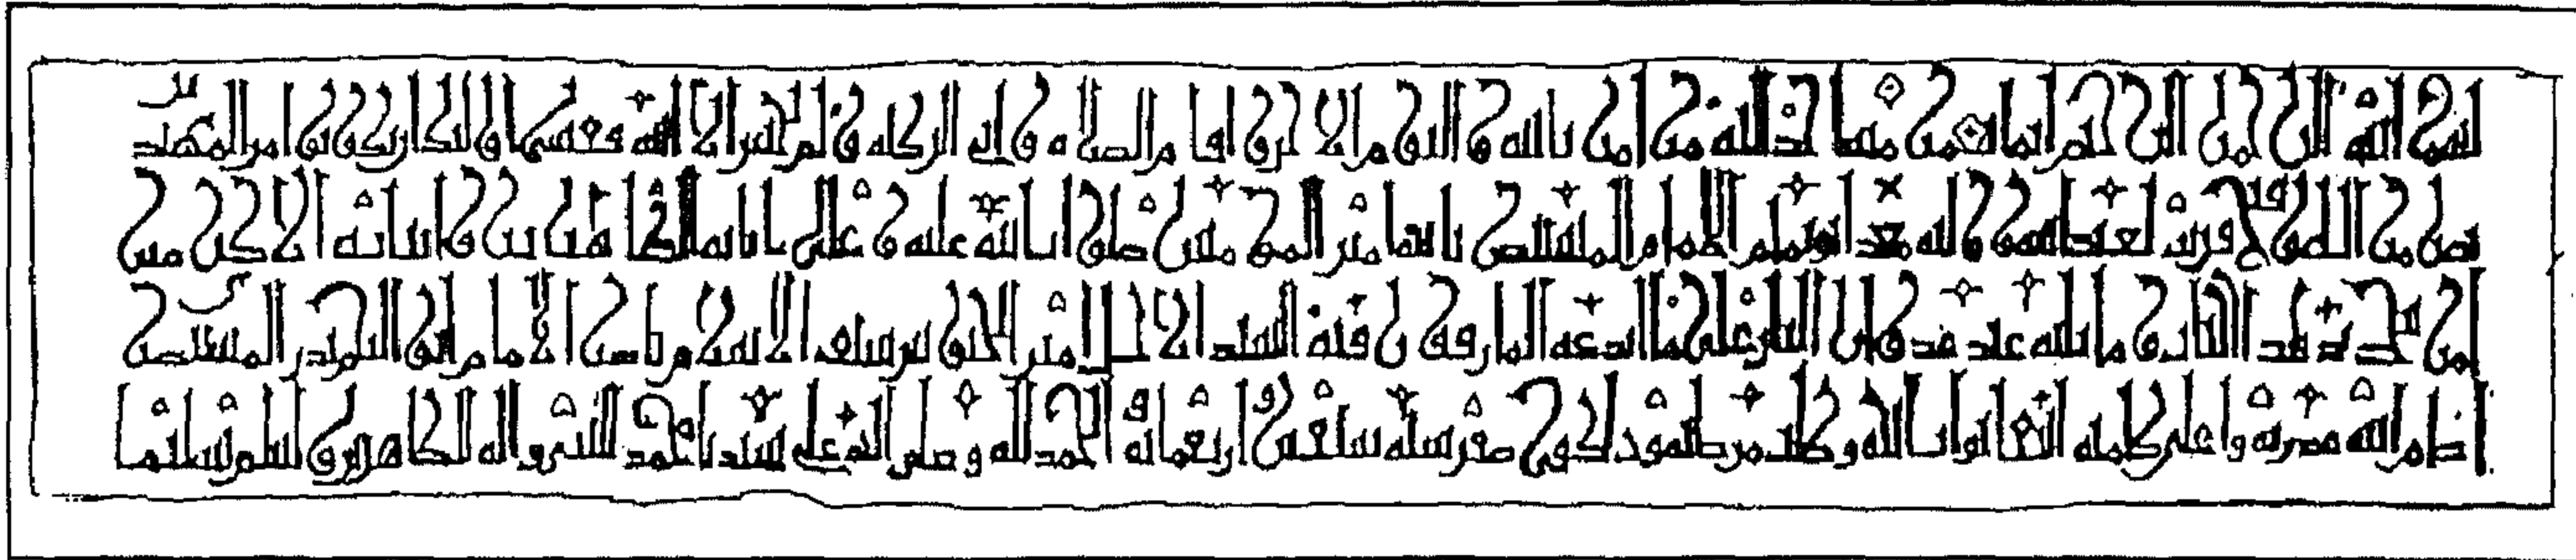 بسم الله الرحمن الرحيم انما يعمر مساجد الله من امن بالله واليوم الاخر واقام الصلاة واتى الزكاة ولم يخش الا الله فعسى اولئك ان يكونوا من المهتدين
نصر من الله وفتح قريب لعبد الله ووليه معد ابو تميم الامام المستنصر بالله امير المؤمنين صلوات الله عليه وعلى ابائه الطاهرين وابنائه الاكرمين
امر بتجديد هذا الباب وما يليه عند عدوان النار على ما ابدعه المارقون فيه السيد الاجل امير الجيوش سيف الاسلام ناصر الامام ابو النجم بدر المستنصري
ادام الله قدرته واعلى كلمته ابتغاء ثواب الله وطلب مرضاته وذلك في صفر سنة سبعين واربعمائة الحمد لله وصلى الله على سيدنا محمد النبي واله الطاهرين وسلم تسليما